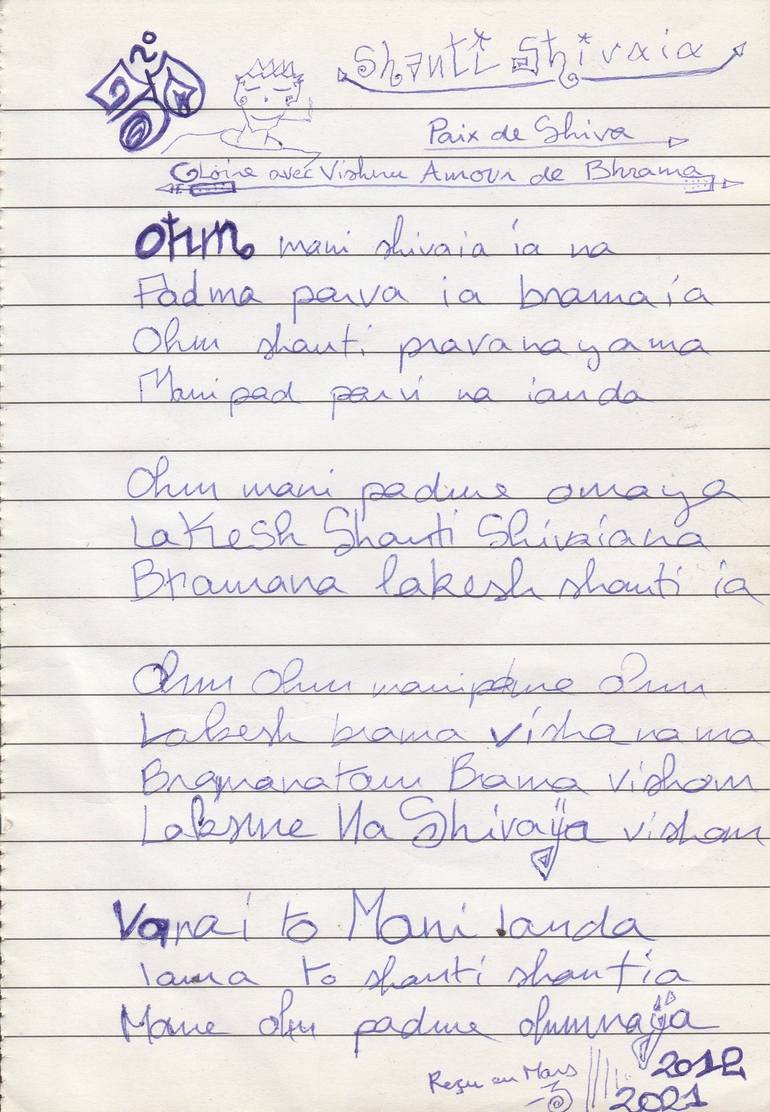 Shanti Shivaia
Paix de Shiva
Gloire avec Vishnu Amour de Bhrama
Ohm mani shivaia ia na
Padma parva ia bramaïa
Ohm shanti pravanayama
Mani pad parvi na ianda
Ohm mani padme omaya
Lakesh Shanti Shivaiana
Bramana lakesh shanti ia
Ohm Ohm manipadme Ohm
Lakesh brama vishanama
Bramanatam Brama vishom
Laksme Na Shivaïja vishom
Vanai to Mani Ianda
Iama to shanti shantia
Mane ohm padme ohmnaïja
Reçu en Mars 2012
2021